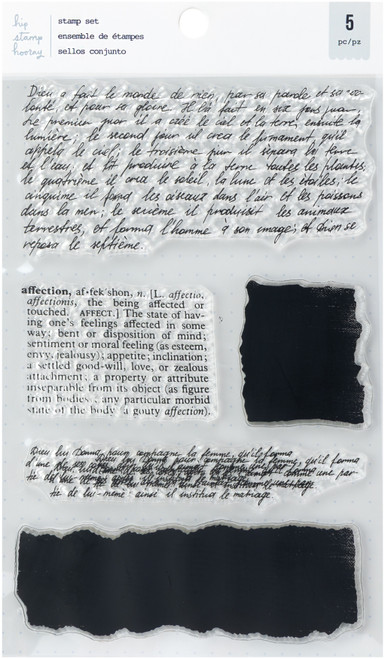 hip
stamp
hooray
stamp set
ensemble de étampes
sellos conjunto
5
pc/pz
Dieu a fait le monde de rien, par sa parole et sa vo-
lonté, et pour sa gloire. Il l'a fait en six jours
Le premier jour il a créé le ciel et la terre, ensuite la
lumière; le second jour il crea le firmament, qu'il
appela le ciel; le troisième jour il sépara la terre
et l'eau, et fit produire à la terre toutes les plantes;
le quatrième il crea le soleil, la lune et les étoiles; le
cinquime il forma les oiseaux dans l'air et les poissons
dans la mer; le sixième il produisit les animaux
terrestres, et forma l'homme à son image; et Dieu se
reposa le septième.
affection, af-fek'shon, n. [L. affectio,
affectionis, the being affected or
touched. AFFECT.] The state of hav-
ing one's feelings affected in some
way; bent or disposition of mind;
sentiment or moral feeling (as esteem,
envy, jealousy); appetite; inclination;
a settled good-will, love, or zealous
attachment; a property or attribute
inseparable from its object (as figure
from bodies; any particular morbid
state of the body (a gouty affection).
Dieu lui donna pour compagne la femme, qu'il forma
d'une
une par-
tie de lui-même: ainsi il institua le mariage.